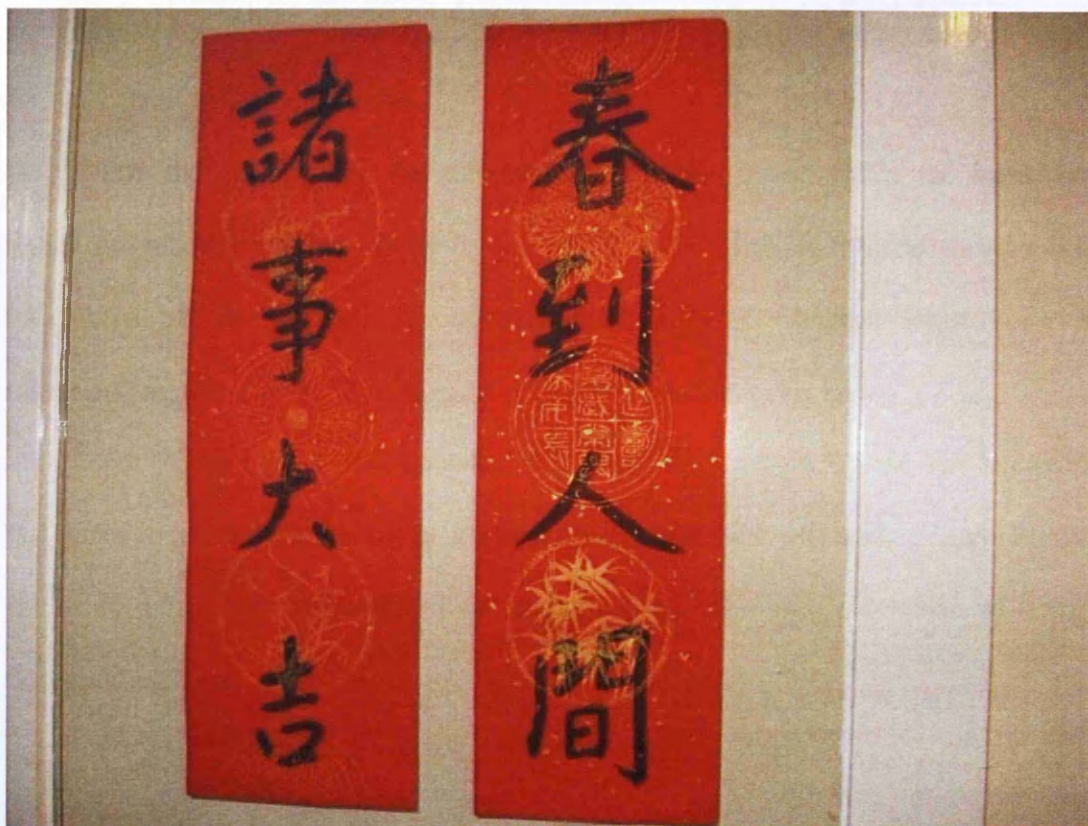 春到人間
諸事大吉